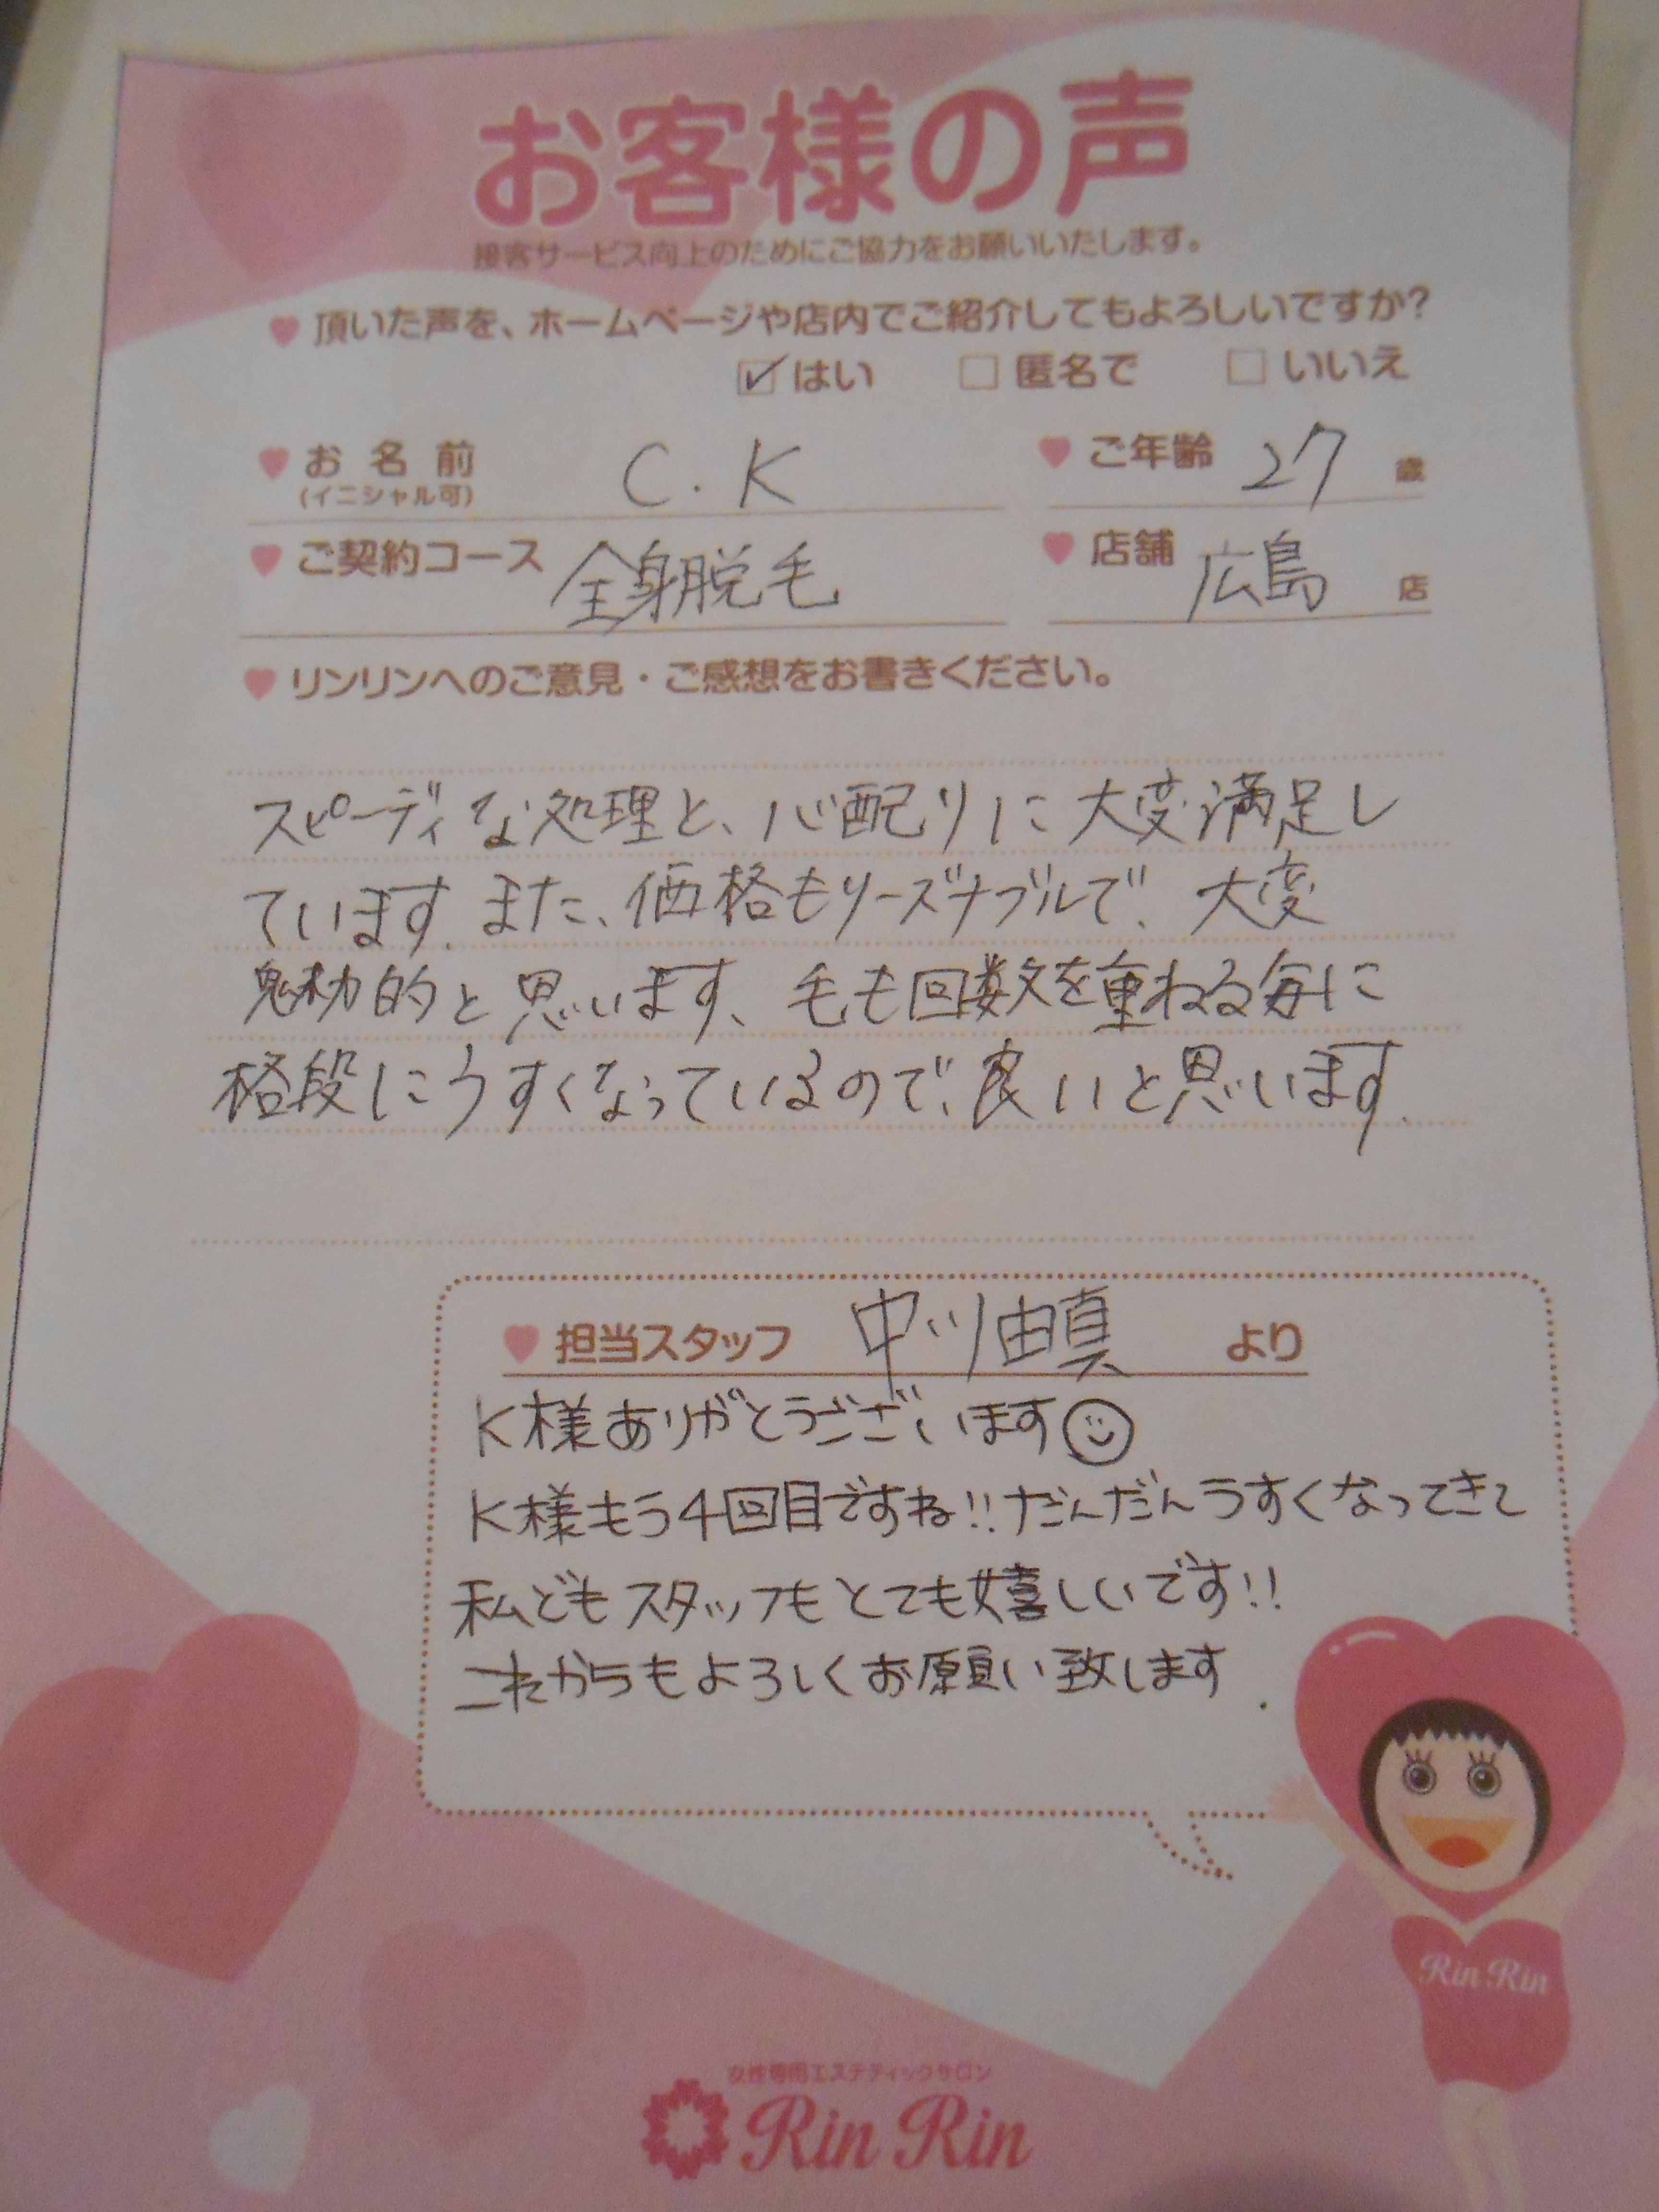 お客様の声
接客サービス向上のためにご協力をお願いいたします。
頂いた声を、ホームページや店内でご紹介してもよろしいですか?
はい 匿名で いいえ
お名前 C.K ご年齢 27 歳
(イニシャル可)
ご契約コース 全身脱毛 店舗 広島 店
リンリンへのご意見・ご感想をお書きください。
スピーディな処理と、心配りに大変満足し
ています。また、価格もリーズナブルで、大変
魅力的と思います、毛も回数を重ねる毎に
格段にうすくなっているので、良いと思います.
担当スタッフ 中川由真 より
K様ありがとうございます
K様もう4回目ですね!!だんだんうすくなってきて
私どもスタッフもとても嬉しいです!!
これからもよろしくお願い致します.
Rin Rin
女性専用エステティックサロン
Rin Rin